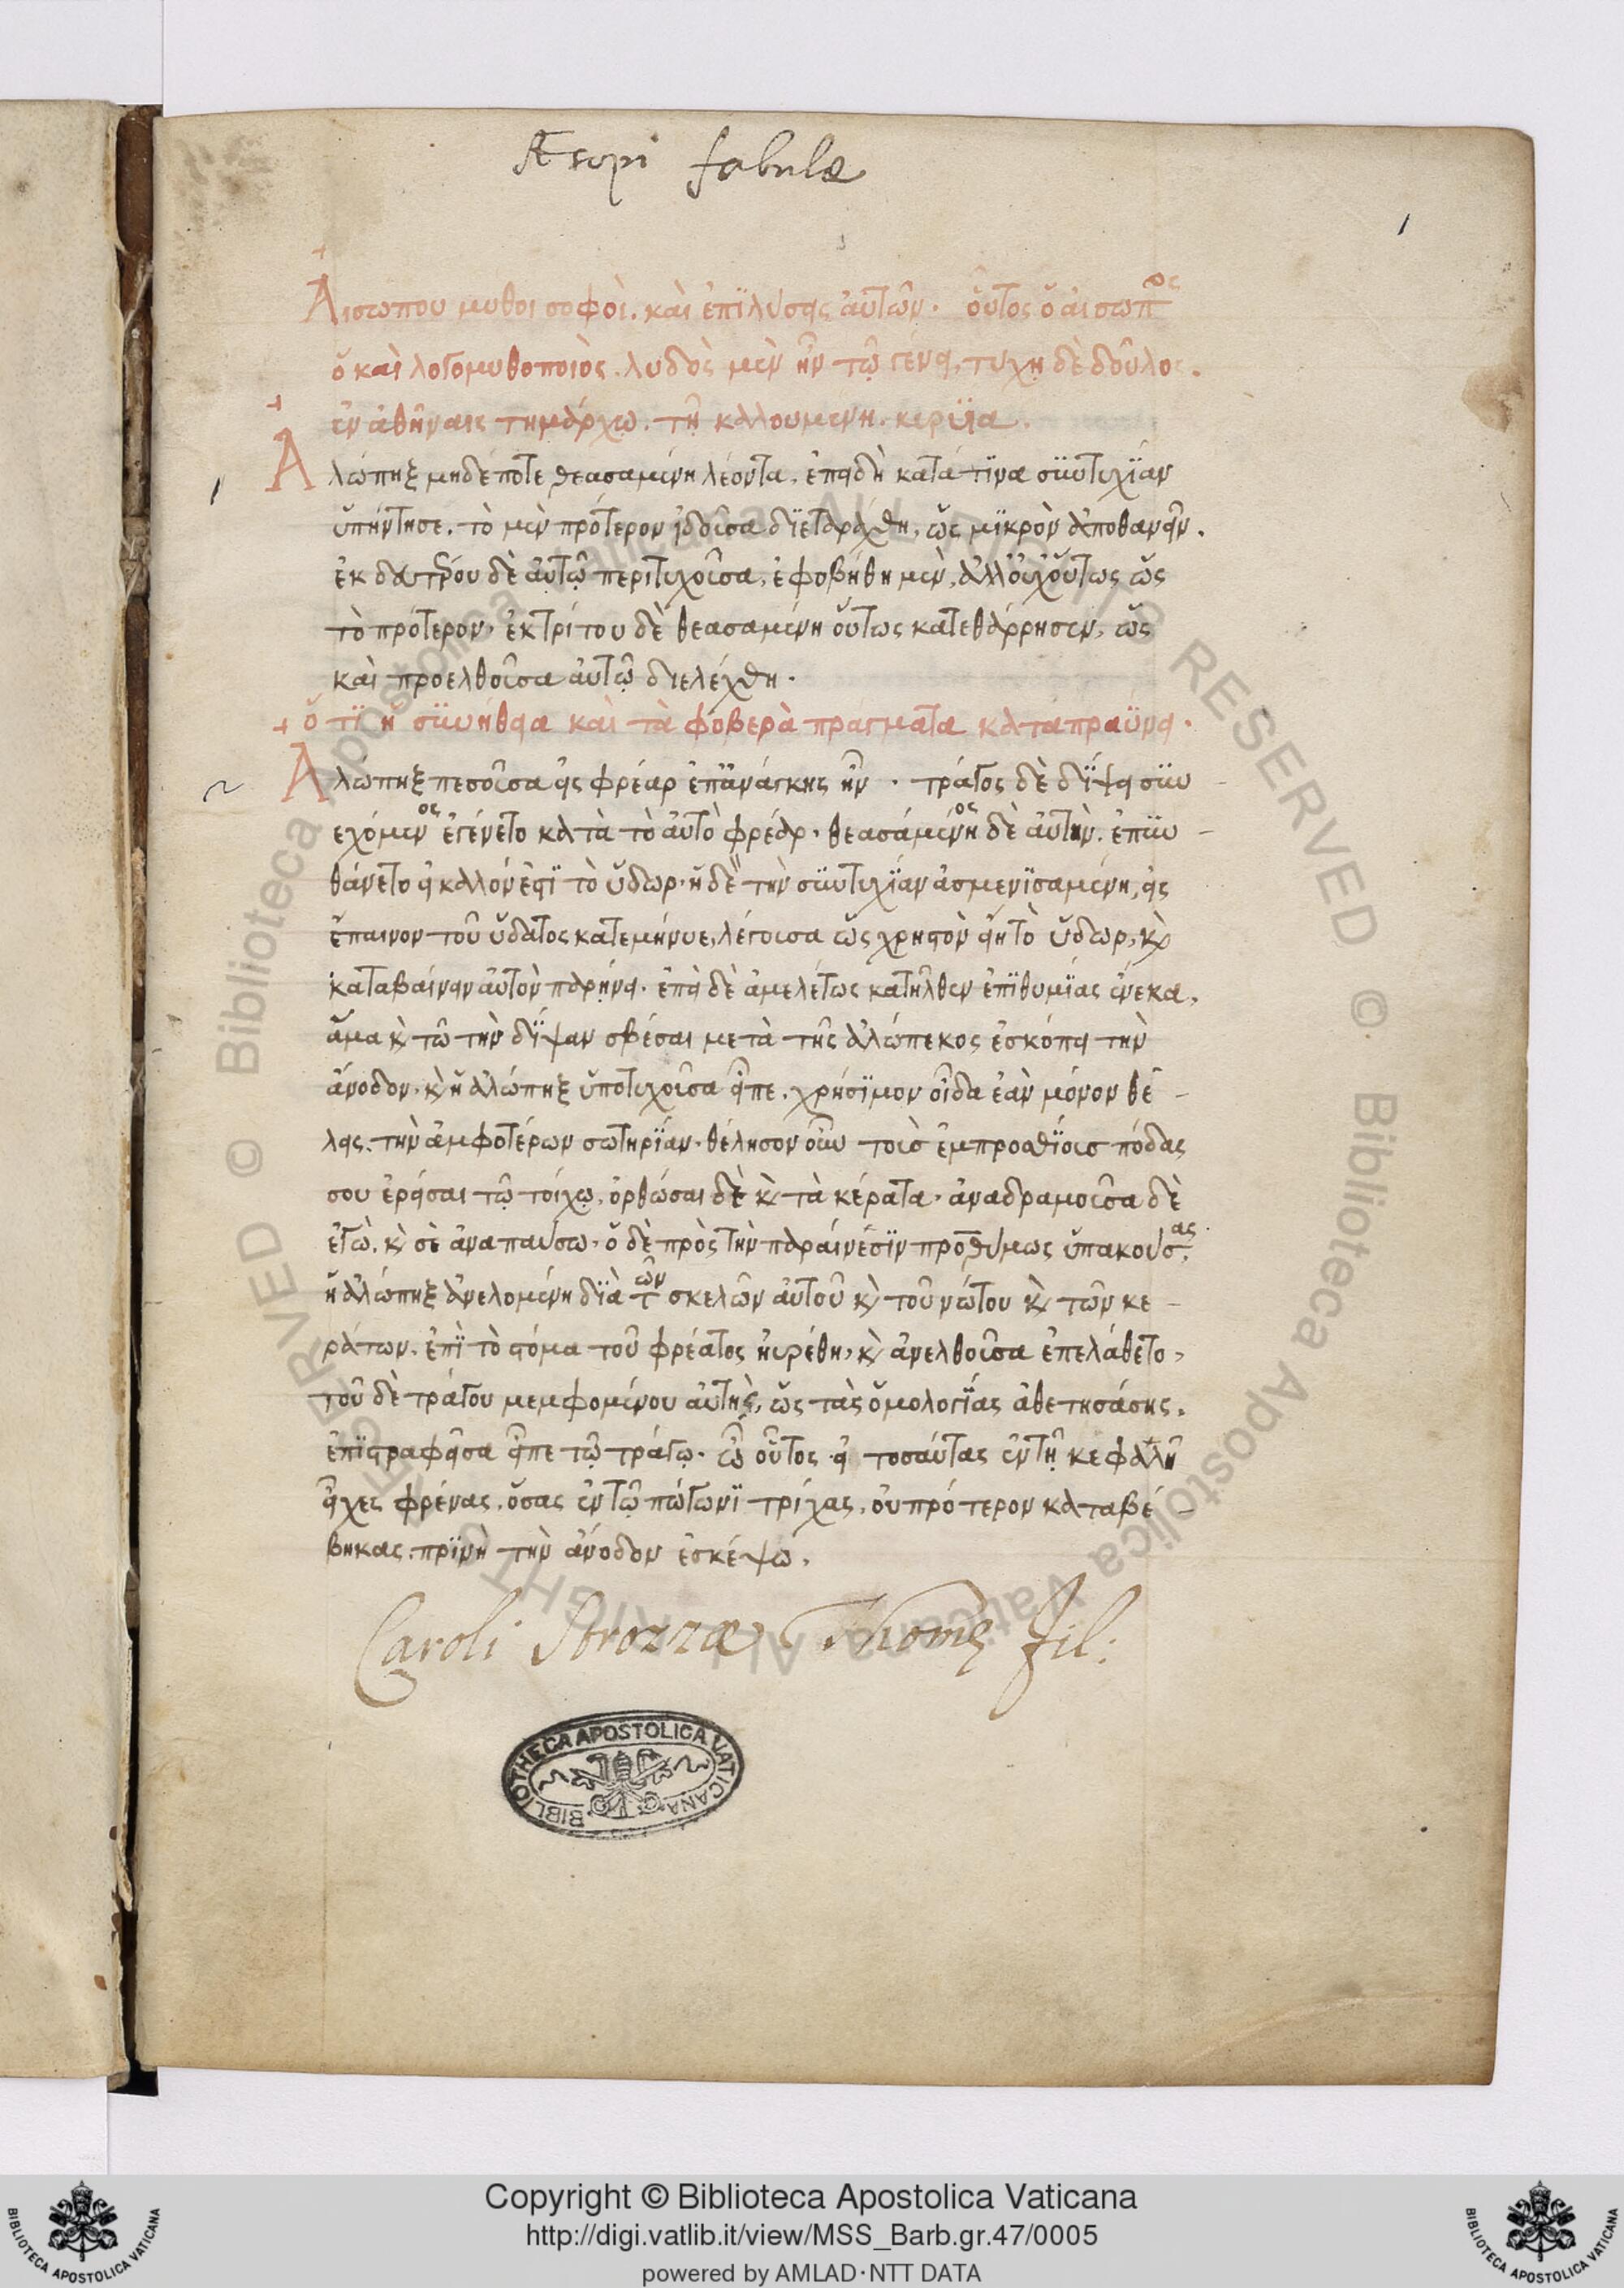 Æsopi fabulæ
1
Αισωπου μυθοι σοφοὶ. καὶ ἐπϊλύσεις ἀυτῶν. οὗτος ὁ ἀισωπος
ὁ καὶ λογομυθοποιὸς. λυδὸς μὲν ἦν τῷ γένει, τυχη δὲ δοῦλος.
ἐν ἀθήναις τημάρχω. τῆ καλουμενη.
1
Αλώπηξ μηδέποτε θεασαμένη λέοντα, ἐπειδὴ κατά τϊνα σϋντυχΐαν
ὑπήντησε. τὸ μὲν πρότερον ἰδοῦσα δϊεταράχθη, ὡς μϊκρὸν ἀποθανεῖν.
ἐκ δευτέρου δὲ ἀυτῷ περιτυχοῦσα, ἐφοβήθη μὲν, ἀλλ' ὀυχ' οὕτως ὡς
τὸ πρότερον. ἐκ τρίτου δὲ θεασαμένη οὕτως κατεθάρρησεν, ὡς
καὶ προελθοῦσα ἀυτῷ διελέχθη.
ὅτϊ ἡ σϋνήθεια καὶ τὰ φοβερὰ πραγματα καταπραΰνει.
2
Αλώπηξ πεσοῦσα εἰς φρέαρ ἐπἀνάγκης ἦν. τράγος δὲ δΐψει σϋν
εχόμενος ἐγένετο κατὰ τὸ ἀυτὸ φρέαρ. θεασάμένη δὲ ἀυτὴν. ἐπϋν
θάνετο εἰ καλλόν ἐστϊ τὸ ὕδωρ. ἡ δὲ τὴν σϋντυχΐαν ἀσμενϊσαμένη, εἰς
ἔπαινον τοῦ ὕδατος κατεμήνυε, λέγουσα ὡς χρηστὸν εἴη τὸ ὕδωρ, κ
καταβαίνειν ἀυτὸν παρήνει. ἐπεὶ δὲ ἀμελέτως κατῆλθεν ἐπϊθυμΐας ἕνεκα,
ἅμα κ τῶ τὴν δΐψαν σβέσαι μετὰ τῆς ἀλώπεκος ἐσκόπει τὴν
ἄνοδον. κ ἡ ἀλώπηξ ὑποτυχοῦσα εἶπε. χρήσϊμον οἶδα ἐὰν μόνον θέ
λεις. τὴν ἀμφοτέρων σωτηρΐαν. θέλησον οὖν τοὺσ ἐμπροσθΐουσ πόδας
σου ἐρείσαι τῷ τοίχῳ, ὀρθώσαι δὲ κ τὰ κέρατα. ἀναδραμοῦσα δὲ
ἐγὼ. κ σὲ ἀναπαύσω. ὁ δὲ πρὸς τὴν παραίνέσϊν προθύμως ὑπακούσας.
ἡ ἀλώπηξ ἀνελομένη δϊὰ τῶν σκελῶν ἀυτοῦ κ τοῦ νώτου κ τῶν κε
ράτων. ἐπῒ τὸ στόμα τοῦ φρέατος ηὑρέθη, κ ἀνελθοῦσα ἐπελάθετο,
τοῦ δὲ τράγου μεμφομένου ἀυτὴς, ὡς τὰς ὁμολογΐας ἀθετησάσης.
ἐπϊστραφεῖσα εἶπε τῷ τράγῳ. ὦ οὗτος. εἰ τοσαύτας ἐν τῆ κεφαλῆ
εἶχες φρένας. ὅσας ἐν τῷ πώγωνϊ τρίχας, ὀυ πρότερον καταβέ
βηκας. πρϊν ἢ τὴν ἄνοδον ἐσκέψω.
Caroli Strozzæ Thomæ fil:
BIBLIOTHECA APOSTOLICA VATICANA
Copyright © Biblioteca Apostolica Vaticana
http://digi.vatlib.it/view/MSS_Barb.gr.47/0005
powered by AMLAD·NTT DATA
BIBLIOTECA APOSTOLICA VATICANA
BIBLIOTECA APOSTOLICA VATICANA
© Biblioteca Apostolica Vaticana ALL RIGHTS RESERVED © Biblioteca Apostolica Vaticana ALL RIGHTS RESERVED